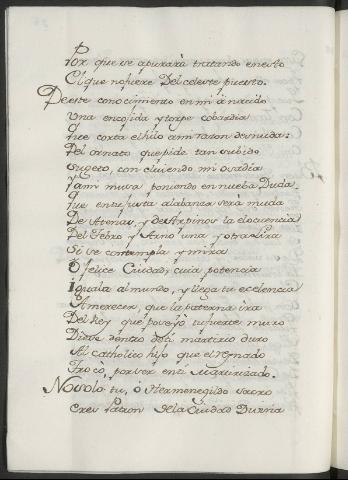 Por que se apurarà tratando en esto
El que no fuere Del celeste puesto.
De este conocimiento en mi à nacido
Una encojida y torpe cobardia
Que corta el hilo a mi razon desnuda:
Del ornato que pide tan subido
Sugeto, con cluiendo mi osadia
Y a mi musa poniendo en nueba Duda.
Que en tu justa alabanza serà muda
De Atenas, y de Arpinos la elocuencia
Del Tebro y Arno una y otra Lira
Si se contempla y mira
O felice Ciudad, cuia potencia
Iguala al mundo, y llega tu excelencia
A merecer, que la paterna ira
Del Rey que poseyò tu fuerte muro
Diese dentro de ti martirio duro
Al Catholico hijo que el reynado
Trocò, por ser en ti Martirizado.
No solo tu, ò Hermenegildo sacro
Eres Patron de la Ciudad Divina